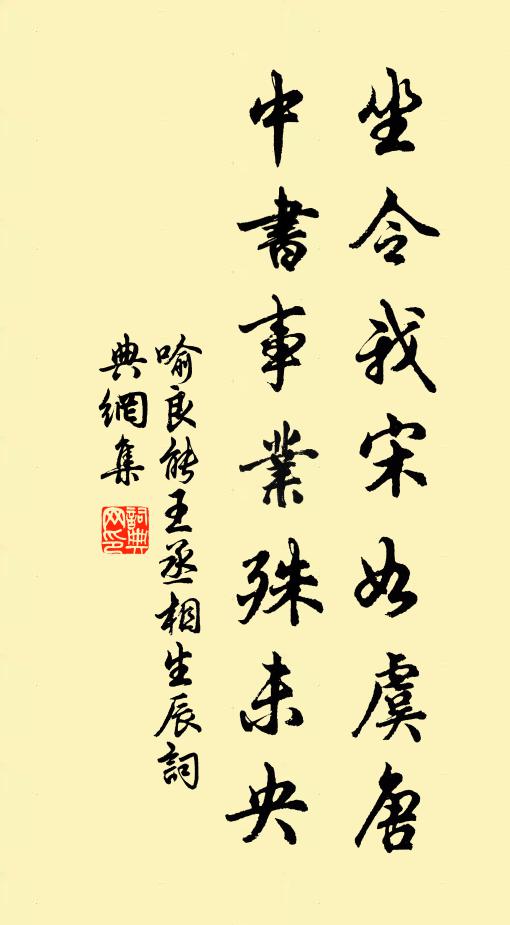 坐令我宋如虞唐
中書事業殊未央
喻良能王丞相生辰詞
典網集
詞典网印